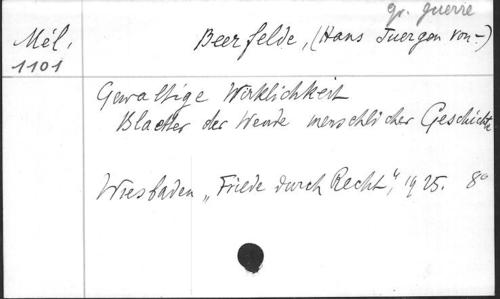 gr. guerre
Mél. Beerfelde, (Hans Juergen von-)
1101
Gewaltige Wirklichkeit
Blaetter der Wende menschlicher Geschichte
Wiesbaden „Friede durch Recht", 1925. 8°